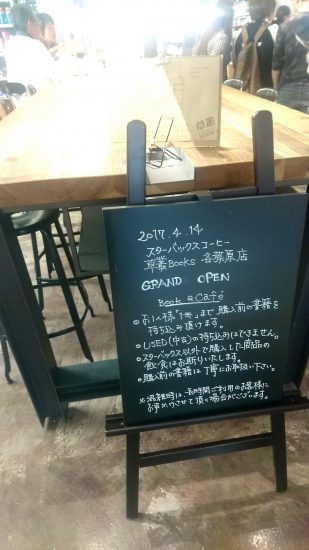 2017.4.14
スターバックスコーヒー
草叢Books 各務原店
GRAND OPEN
Book & Café
●お1人様1冊まで購入前の書籍を
持ち込み頂けます。
●USED(中古)の持ち込みはできません。
●スターバックス以外で購入した商品の
飲食はお断りいたします。
●購入前の書籍は丁寧にお取扱い下さい。
※混雑時は長時間ご利用のお客様に
お声かけさせて頂く場合がございます。
草叢
BOOKS